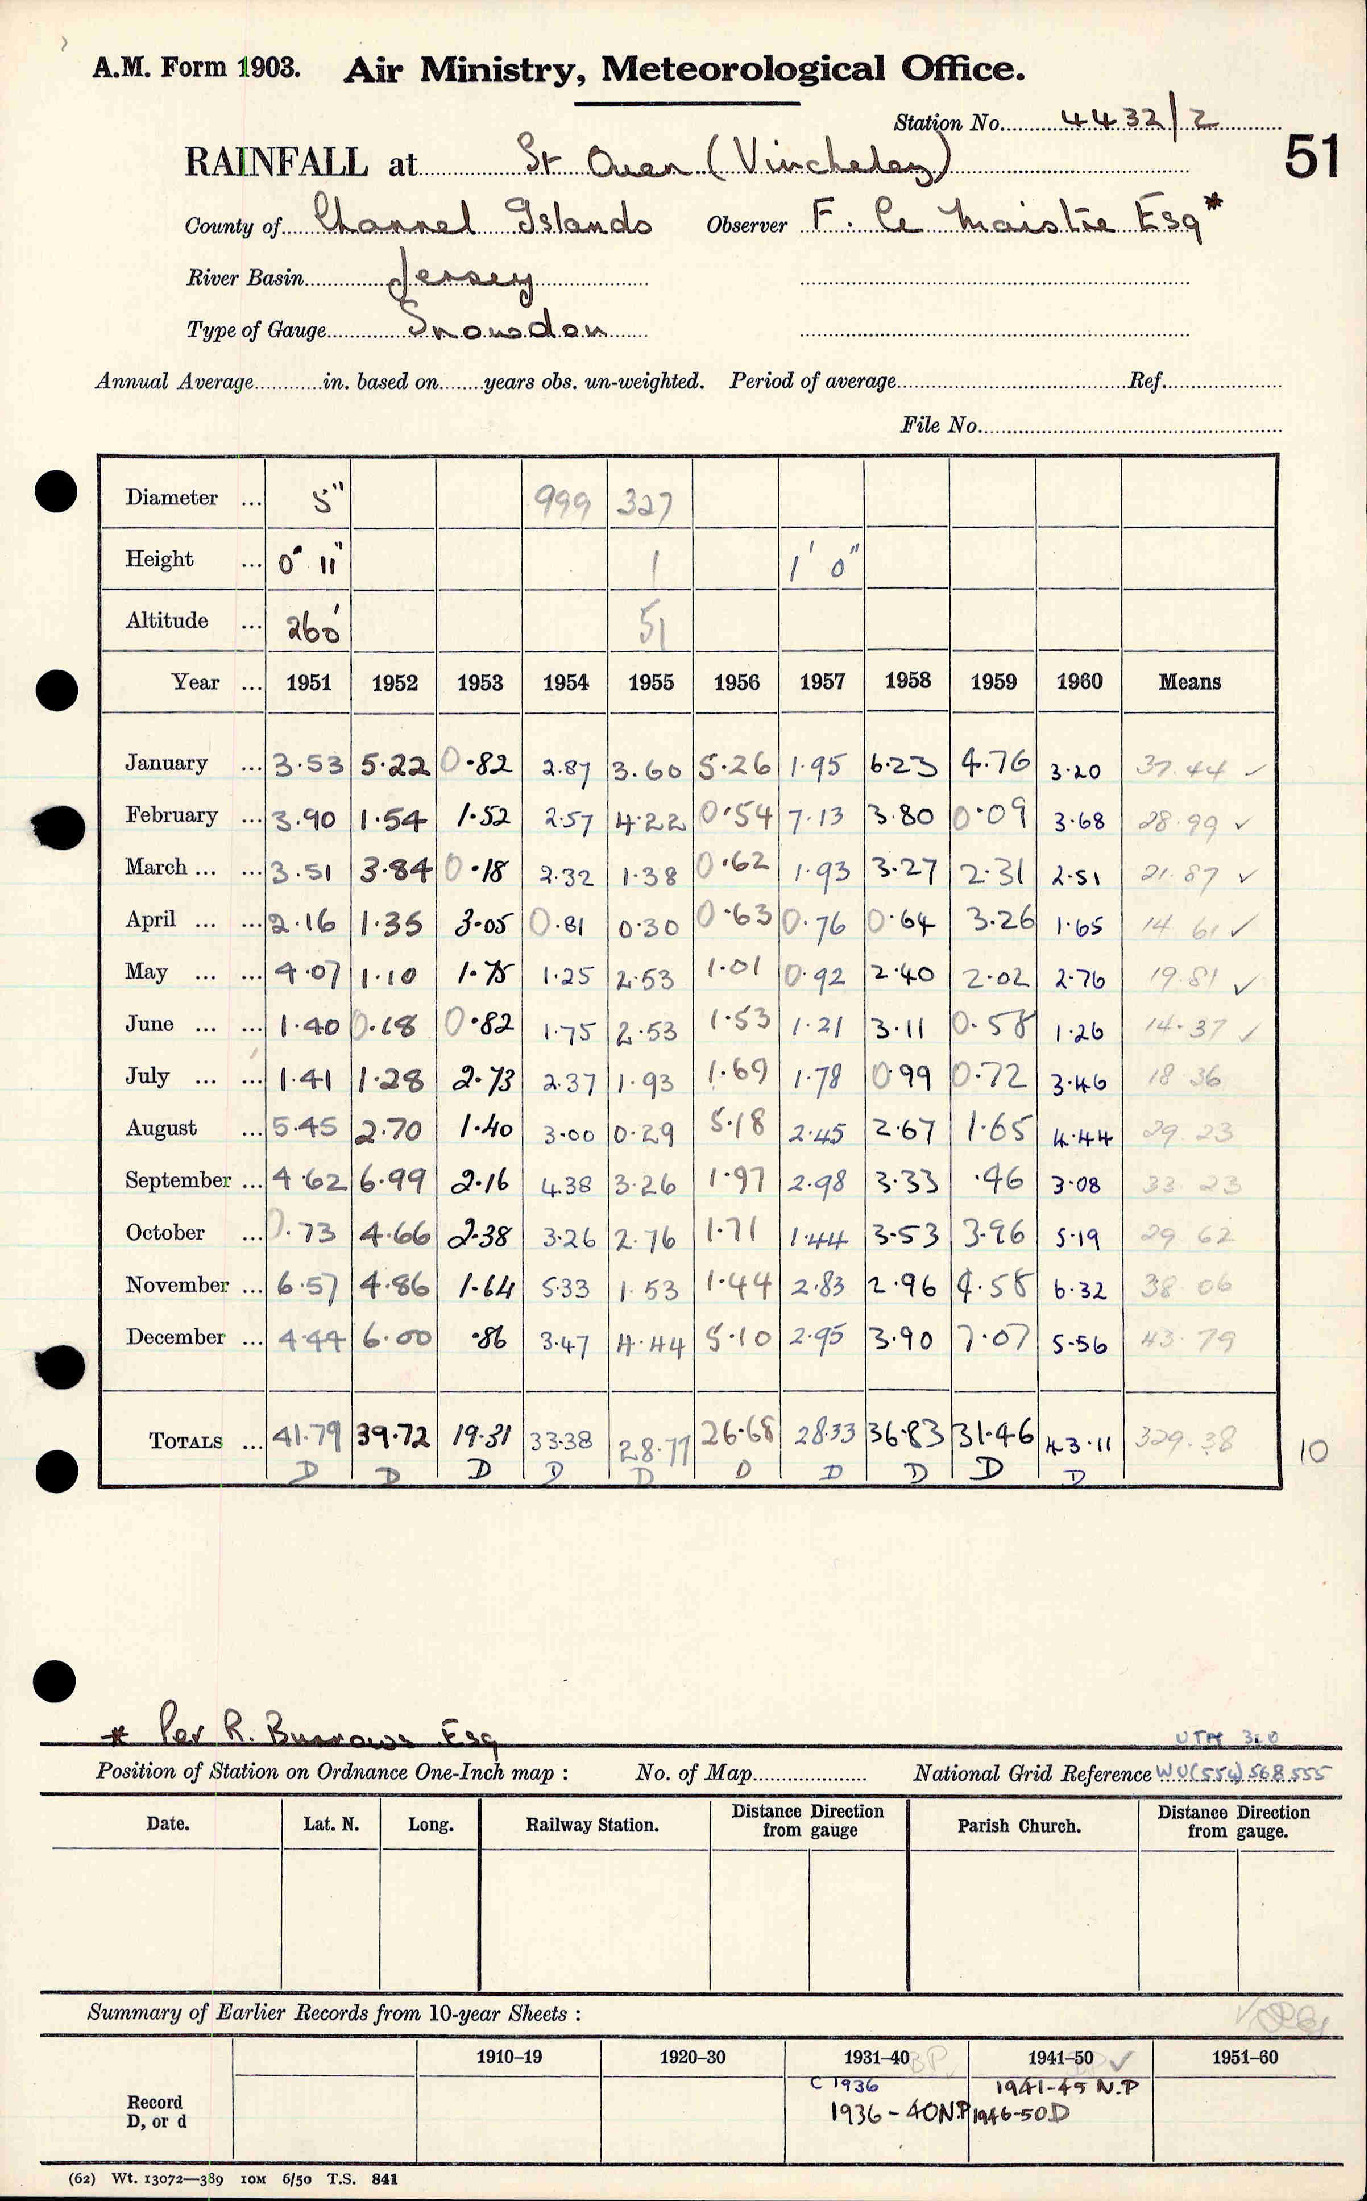 A.M. Form 1903. Air Ministry, Meteorological Office.
Station No. 4432/2
51
RAINFALL at St Ouen (Vincheley)
County of Channel Islands Observer F. Le Maistre Esq*
River Basin Jersey
Type of Gauge Snowdon
Annual Average in. based on years obs. un-weighted. Period of average Ref.
File No.
Diameter ... 5" 999 327
Height ... 0' 11" 1 1' 0"
Altitude ... 260' 51
Year ... 1951 1952 1953 1954 1955 1956 1957 1958 1959 1960 Means
January ... 3.53 5.22 0.82 2.87 3.60 5.26 1.95 6.23 4.76 3.20 37.44 ✓
February ... 3.90 1.54 1.52 2.57 4.22 0.54 7.13 3.80 0.09 3.68 28.99 ✓
March ... ... 3.51 3.84 0.18 2.32 1.38 0.62 1.93 3.27 2.31 2.51 21.87 ✓
April ... ... 2.16 1.35 3.05 0.81 0.30 0.63 0.76 0.64 3.26 1.65 14.61 ✓
May ... ... 4.07 1.10 1.75 1.25 2.53 1.01 0.92 2.40 2.02 2.76 19.81 ✓
June ... ... 1.40 0.18 0.82 1.75 2.53 1.53 1.21 3.11 0.58 1.26 14.37 ✓
July ... ... 1.41 1.28 2.73 2.37 1.93 1.69 1.78 0.99 0.72 3.46 18 36
August ... 5.45 2.70 1.40 3.00 0.29 5.18 2.45 2.67 1.65 4.44 29.23
September ... 4.62 6.99 2.16 4.38 3.26 1.97 2.98 3.33 .46 3.08 33 23
October ... 0.73 4.66 2.38 3.26 2.76 1.71 1.44 3.53 3.96 5.19 29 62
November ... 6.57 4.86 1.64 5.33 1.53 1.44 2.83 2.96 4.58 6.32 38 06
December ... 4.44 6.00 .86 3.47 4.44 5.10 2.95 3.90 7.07 5.56 43.79
TOTALS ... 41.79 39.72 19.31 33.38 28.77 26.68 28.33 36.83 31.46 43.11 329.38 10
D D D D D D D D D D
* Per R. Burrows Esq
UTM 3LO
Position of Station on Ordnance One-Inch map : No. of Map National Grid Reference WV(554) 568 555
Date. Lat. N. Long. Railway Station. Distance Direction from gauge Parish Church. Distance Direction from gauge.
Summary of Earlier Records from 10-year Sheets :
1910–19 1920–30 1931–40 1941–50 1951–60
C 1936 1941-45 N.P
Record D, or d 1936 - 40 N.P 1946-50 D
(62) Wt. 13072—389 10M 6/50 T.S. 841